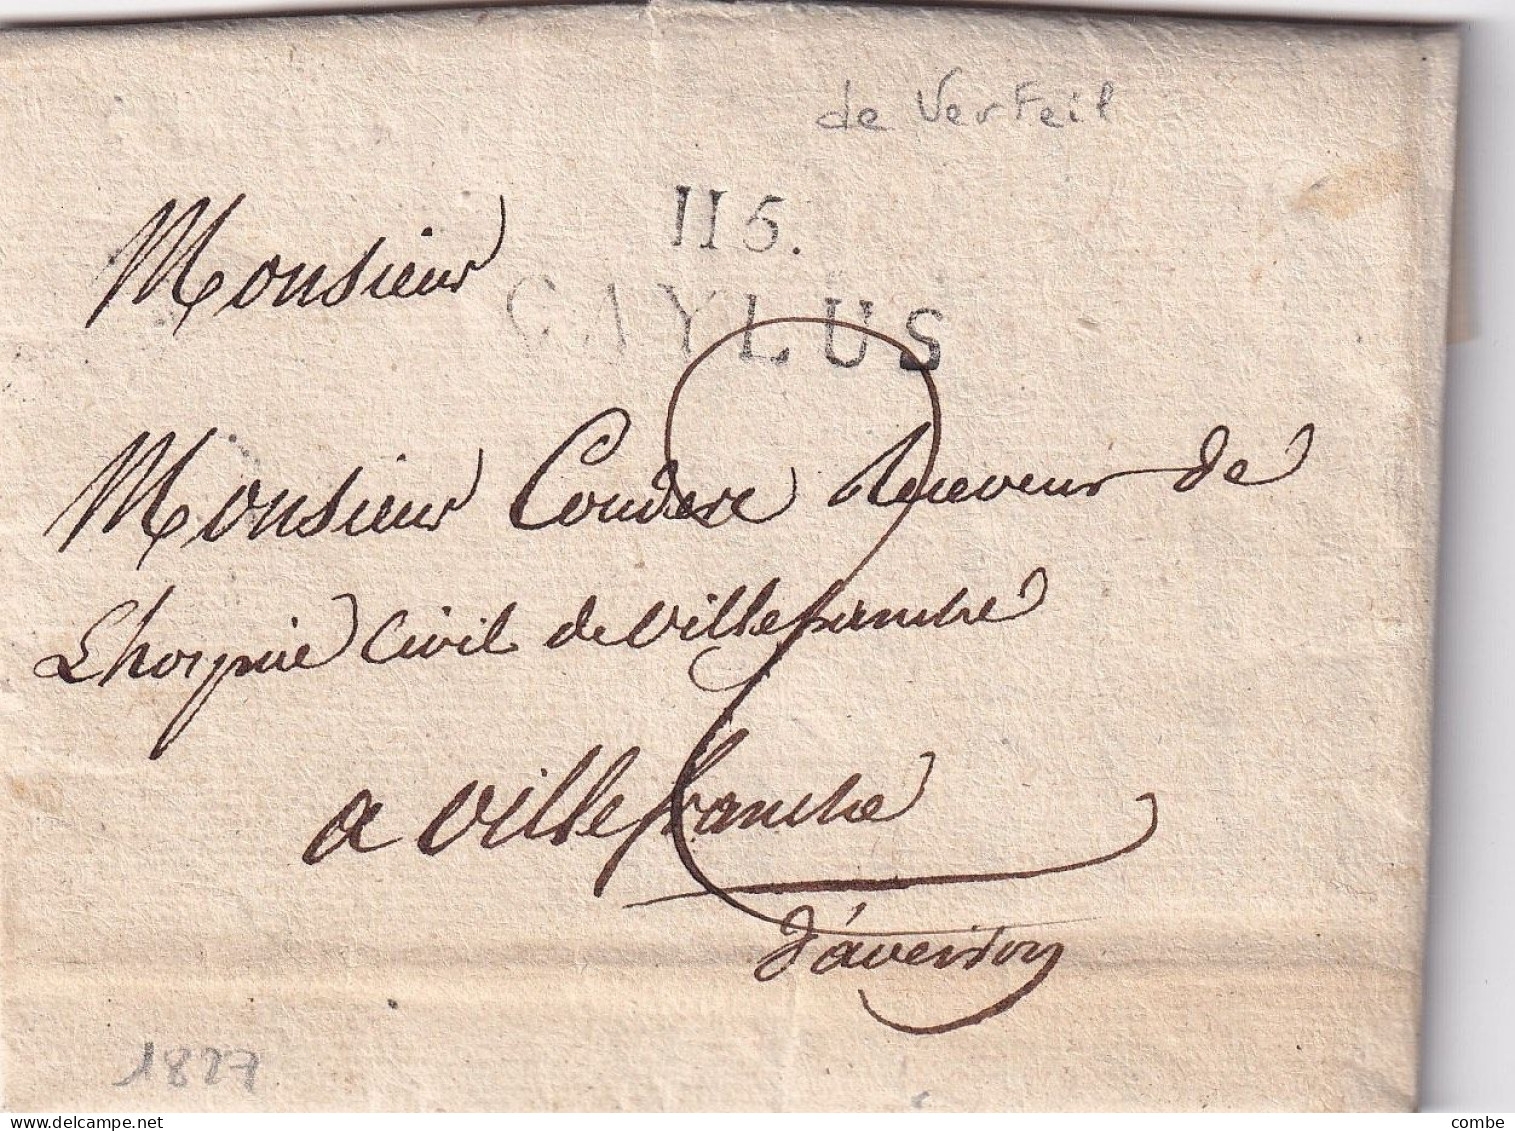 de Verfeil
115.
CAYLUS
Monsieur
Monsieur Couderc Receveur de
Lhospice Civil de villefranche
2
a villefranche
d'aveiron
1827
delcampe.net
combe